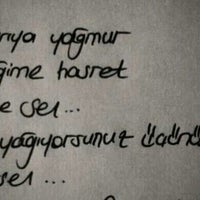 rıya yağmur
ğime hasret
e sel...
yağıyorsunuz
sel ...